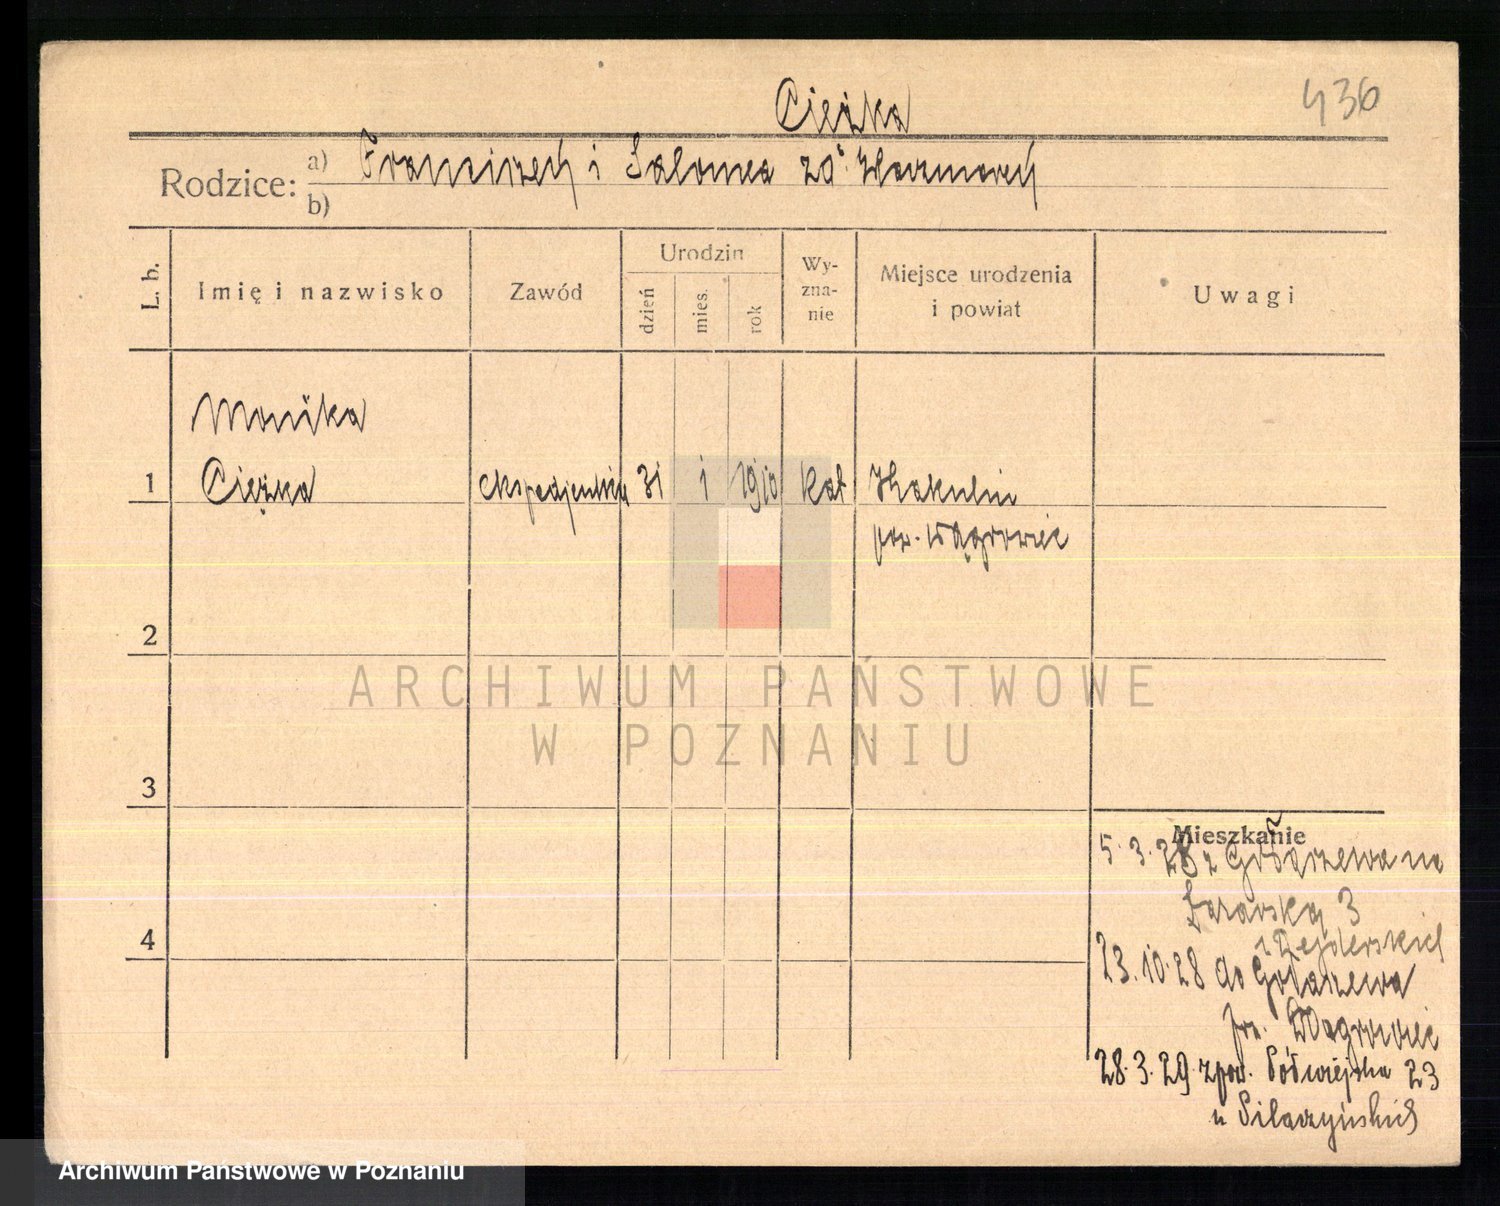 Ciężka
436
Rodzice: a) Franciszek i Salomea zd.
b)
L. b.
Imię i nazwisko
Zawód
Urodzin
dzień
mies.
rok
Wy-
zna-
nie
Miejsce urodzenia
i powiat
Uwagi
Monika
1 Ciężka ekspedjentka 31 1 1910 kat
pow. Wągrowiec
2
ARCHIWUM PAŃSTWOWE
W POZNANIU
3
Mieszkanie
5.3.28 z na
3
4
23.10.28 do
Wągrowiec
28.3.29 z pow. Półwiejska 23
u
Archiwum Państwowe w Poznaniu